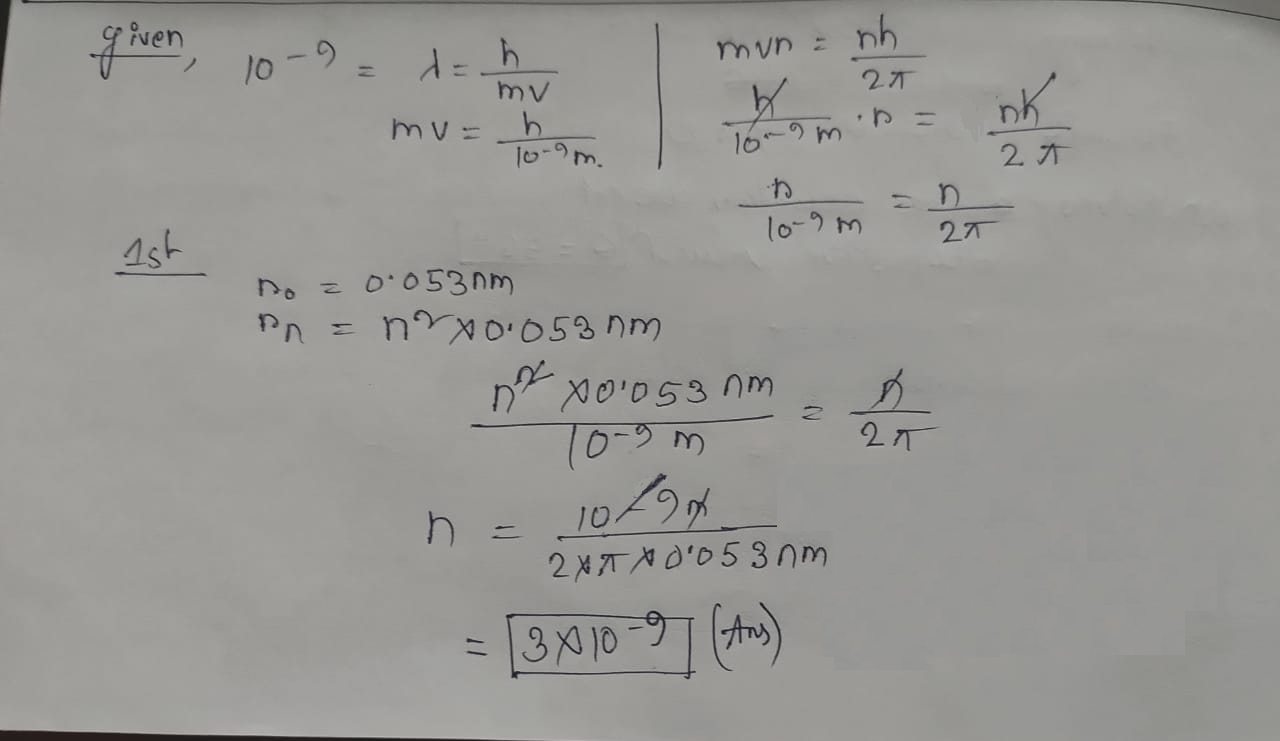 given, 10⁻⁹ = λ = h/mv
mv = h/10⁻⁹ m.
mvr = nh/2π
h/10⁻⁹ m · r = nh/2π
r/10⁻⁹ m = n/2π
1st
r₀ = 0.053nm
rₙ = n² × 0.053 nm
n² × 0.053 nm/10⁻⁹ m = n/2π
n = 10⁻⁹ m/2 × π × 0.053 nm
= 3 × 10⁻⁹ (Ans)